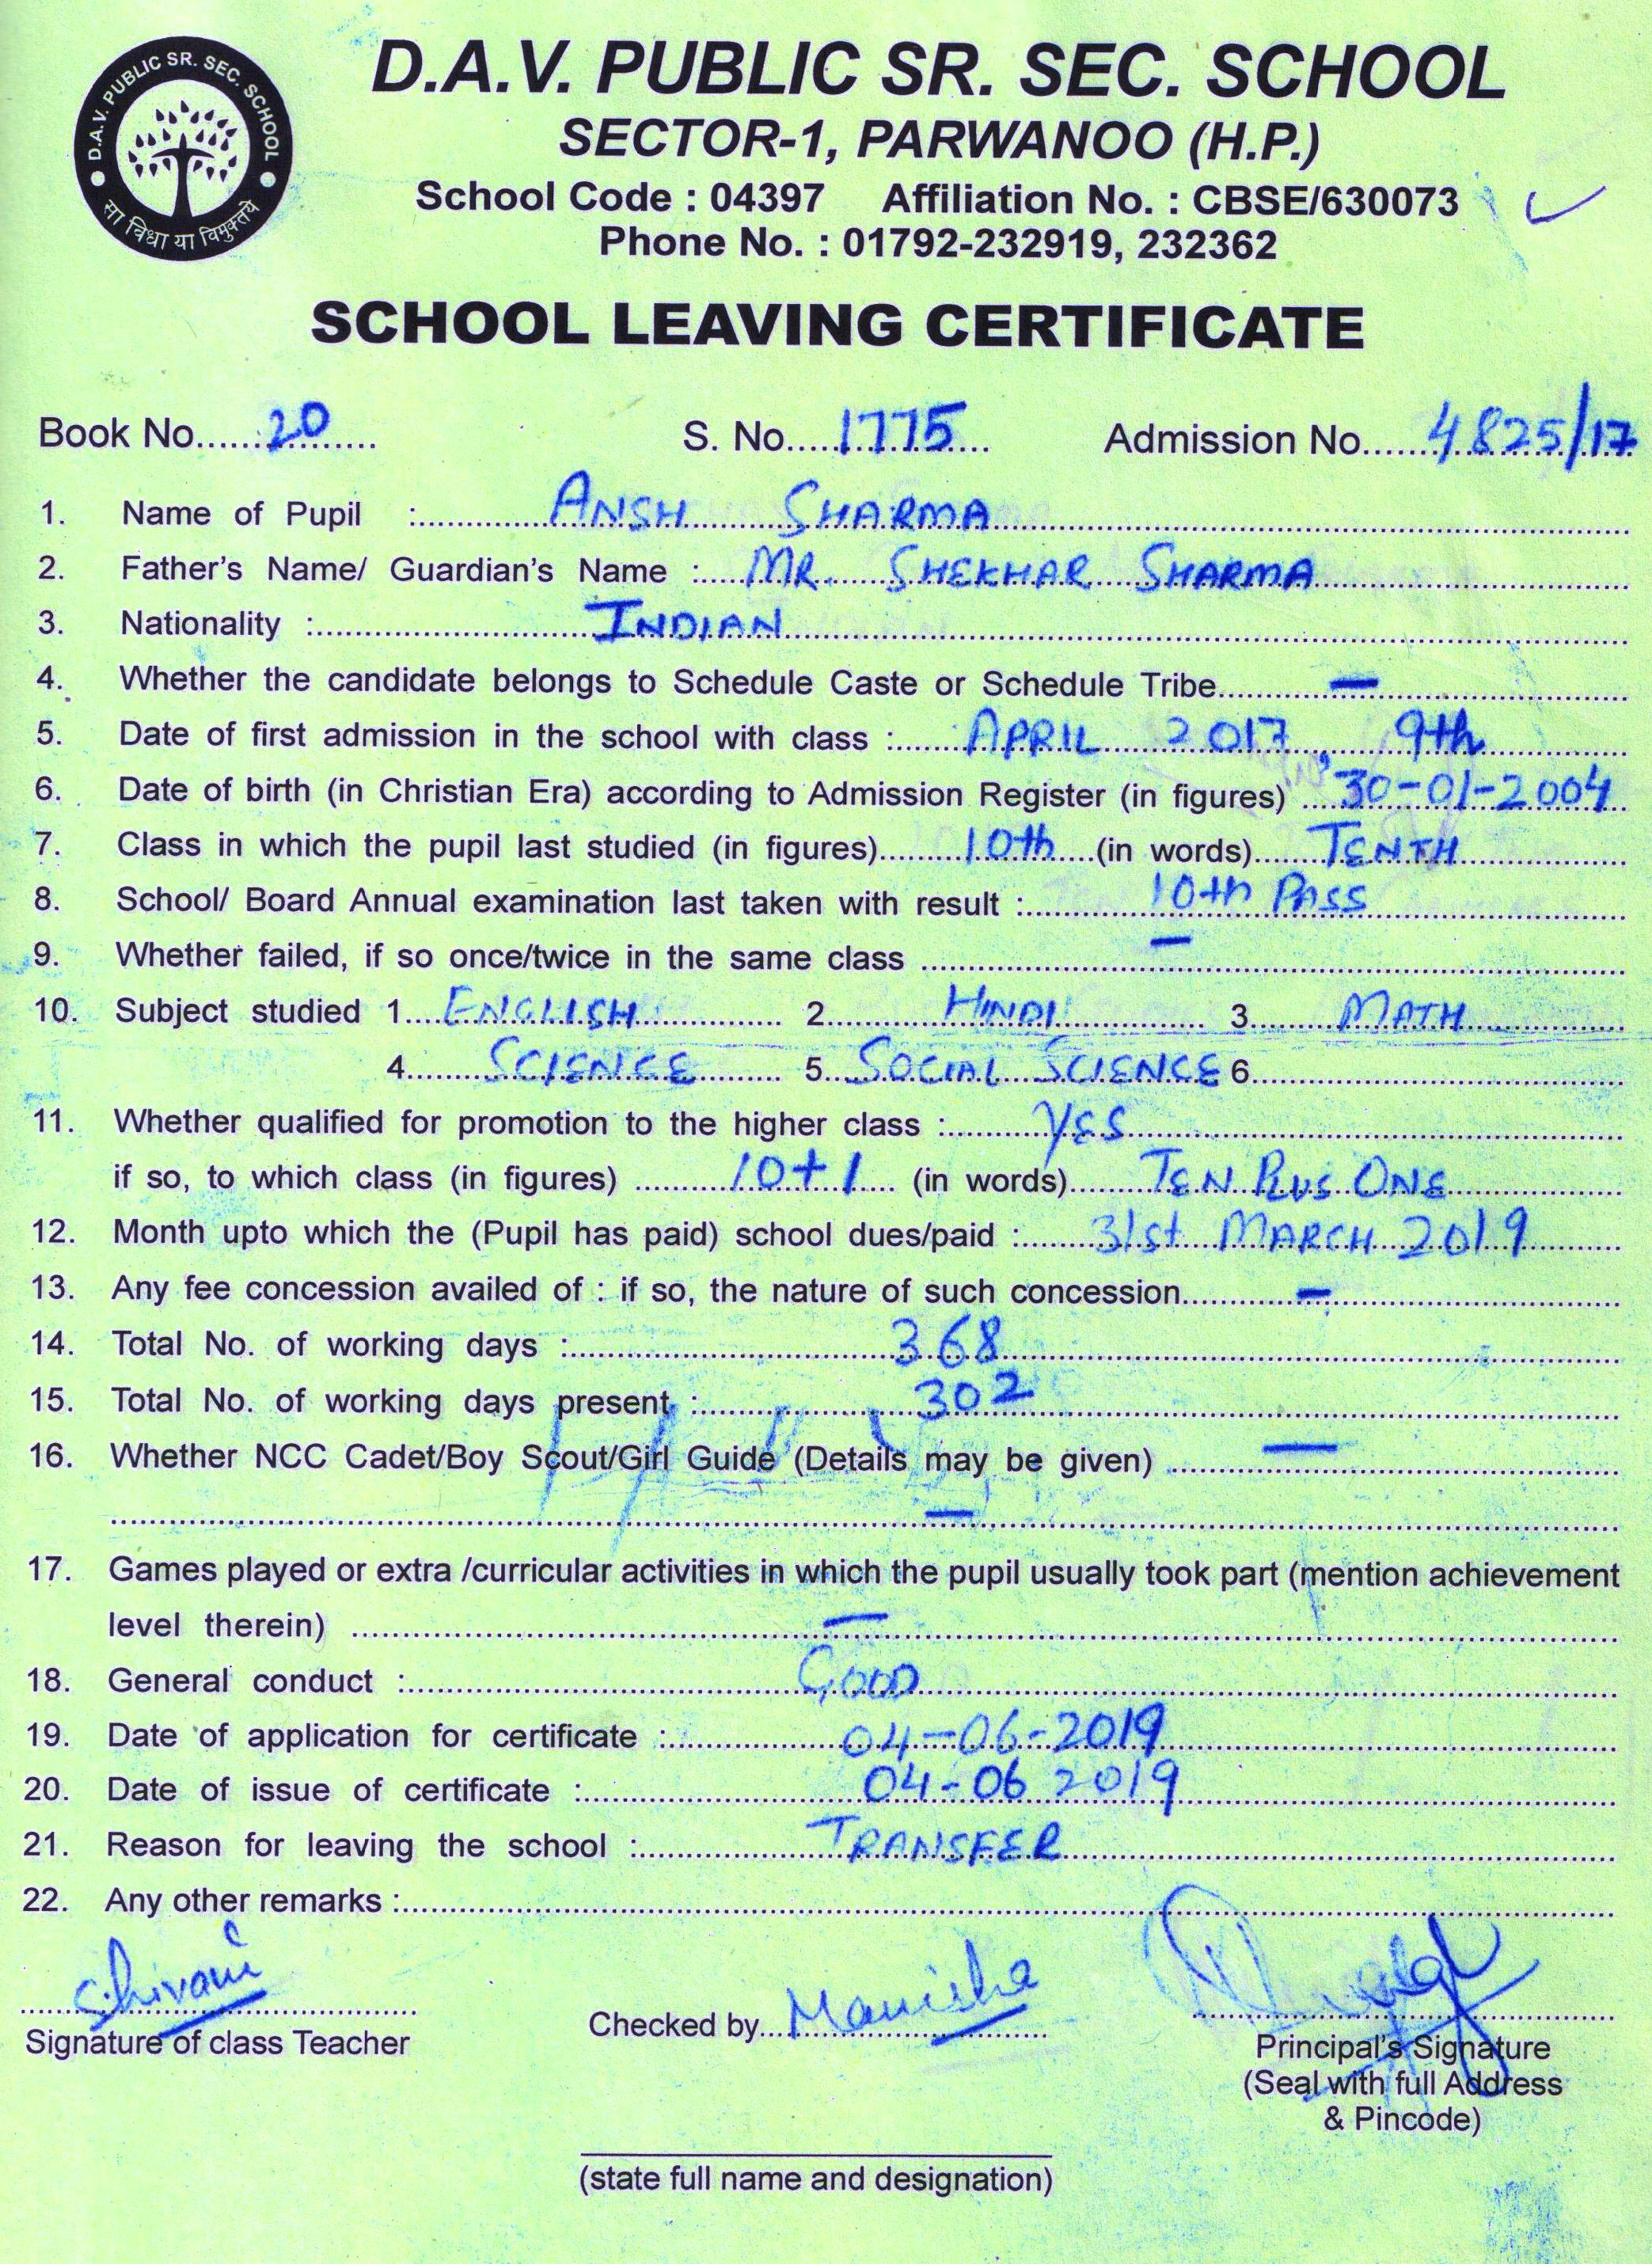 D.A.V. PUBLIC SR. SEC. SCHOOL
सा विद्या या विमुक्तये
D.A.V. PUBLIC SR. SEC. SCHOOL
SECTOR-1, PARWANOO (H.P.)
School Code : 04397 Affiliation No. : CBSE/630073
Phone No. : 01792-232919, 232362
SCHOOL LEAVING CERTIFICATE
Book No. 20 S. No. 1775 Admission No. 4825/17
1. Name of Pupil : ANSH SHARMA
2. Father's Name/ Guardian's Name : MR. SHEKHAR SHARMA
3. Nationality : INDIAN
4. Whether the candidate belongs to Schedule Caste or Schedule Tribe —
5. Date of first admission in the school with class : APRIL 2017, 9th
6. Date of birth (in Christian Era) according to Admission Register (in figures) 30-01-2004
7. Class in which the pupil last studied (in figures) 10th (in words) TENTH
8. School/ Board Annual examination last taken with result : 10th PASS
9. Whether failed, if so once/twice in the same class —
10. Subject studied 1. ENGLISH 2. HINDI 3. MATH
4. SCIENCE 5. SOCIAL SCIENCE 6.
11. Whether qualified for promotion to the higher class : YES
if so, to which class (in figures) 10+1 (in words) TEN PLUS ONE
12. Month upto which the (Pupil has paid) school dues/paid : 31st MARCH 2019
13. Any fee concession availed of : if so, the nature of such concession —
14. Total No. of working days : 368
15. Total No. of working days present : 302
16. Whether NCC Cadet/Boy Scout/Girl Guide (Details may be given) —
—
17. Games played or extra /curricular activities in which the pupil usually took part (mention achievement
level therein) —
18. General conduct : GOOD
19. Date of application for certificate : 04-06-2019
20. Date of issue of certificate : 04-06 2019
21. Reason for leaving the school : TRANSFER
22. Any other remarks :
Shivani
Signature of class Teacher
Checked by Manisha
Principal's Signature
(Seal with full Address
& Pincode)
(state full name and designation)